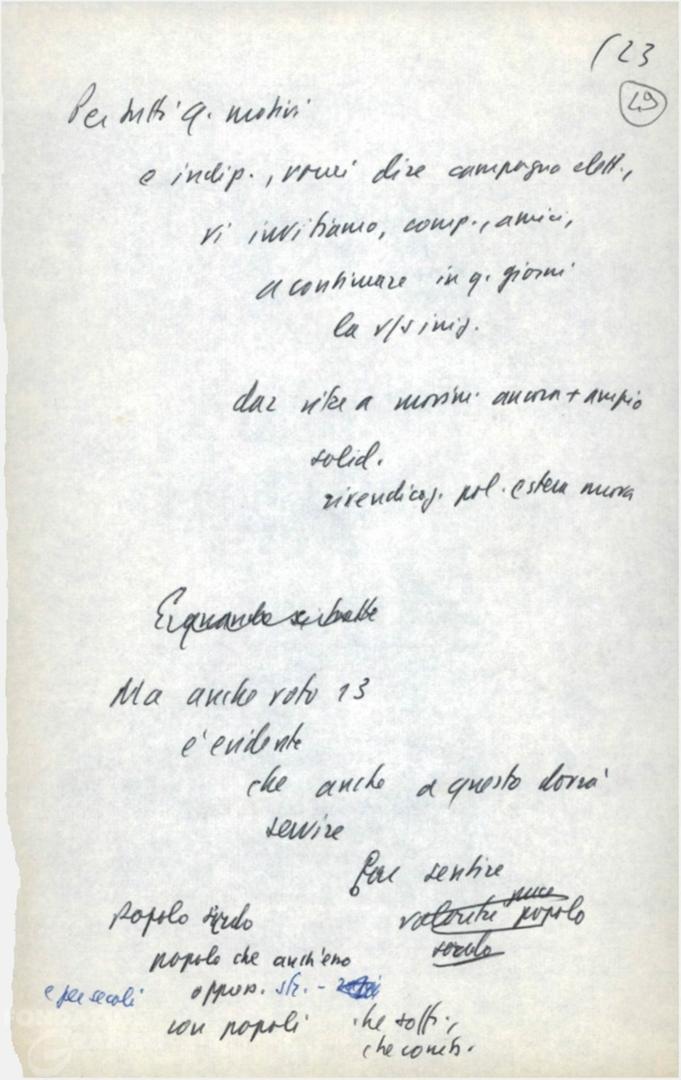 (23
49
Per tutti q. motivi
e indip., vorrei dire campagna elett.,
vi invitiamo, comp., amici,
a continuare in q. giorni
la v/s iniz.
dar vita a movim. ancora + ampio
solid.
rivendicaz. pol. estera nuova
E quando si tratta
Ma anche voto 13
è evidente
che anche a questo dovrà
servire
Far sentire
popolo sardo
popolo
sardo
popolo che anch'esso
e per secoli oppr. str. -
con popoli che soff.,
che comb.